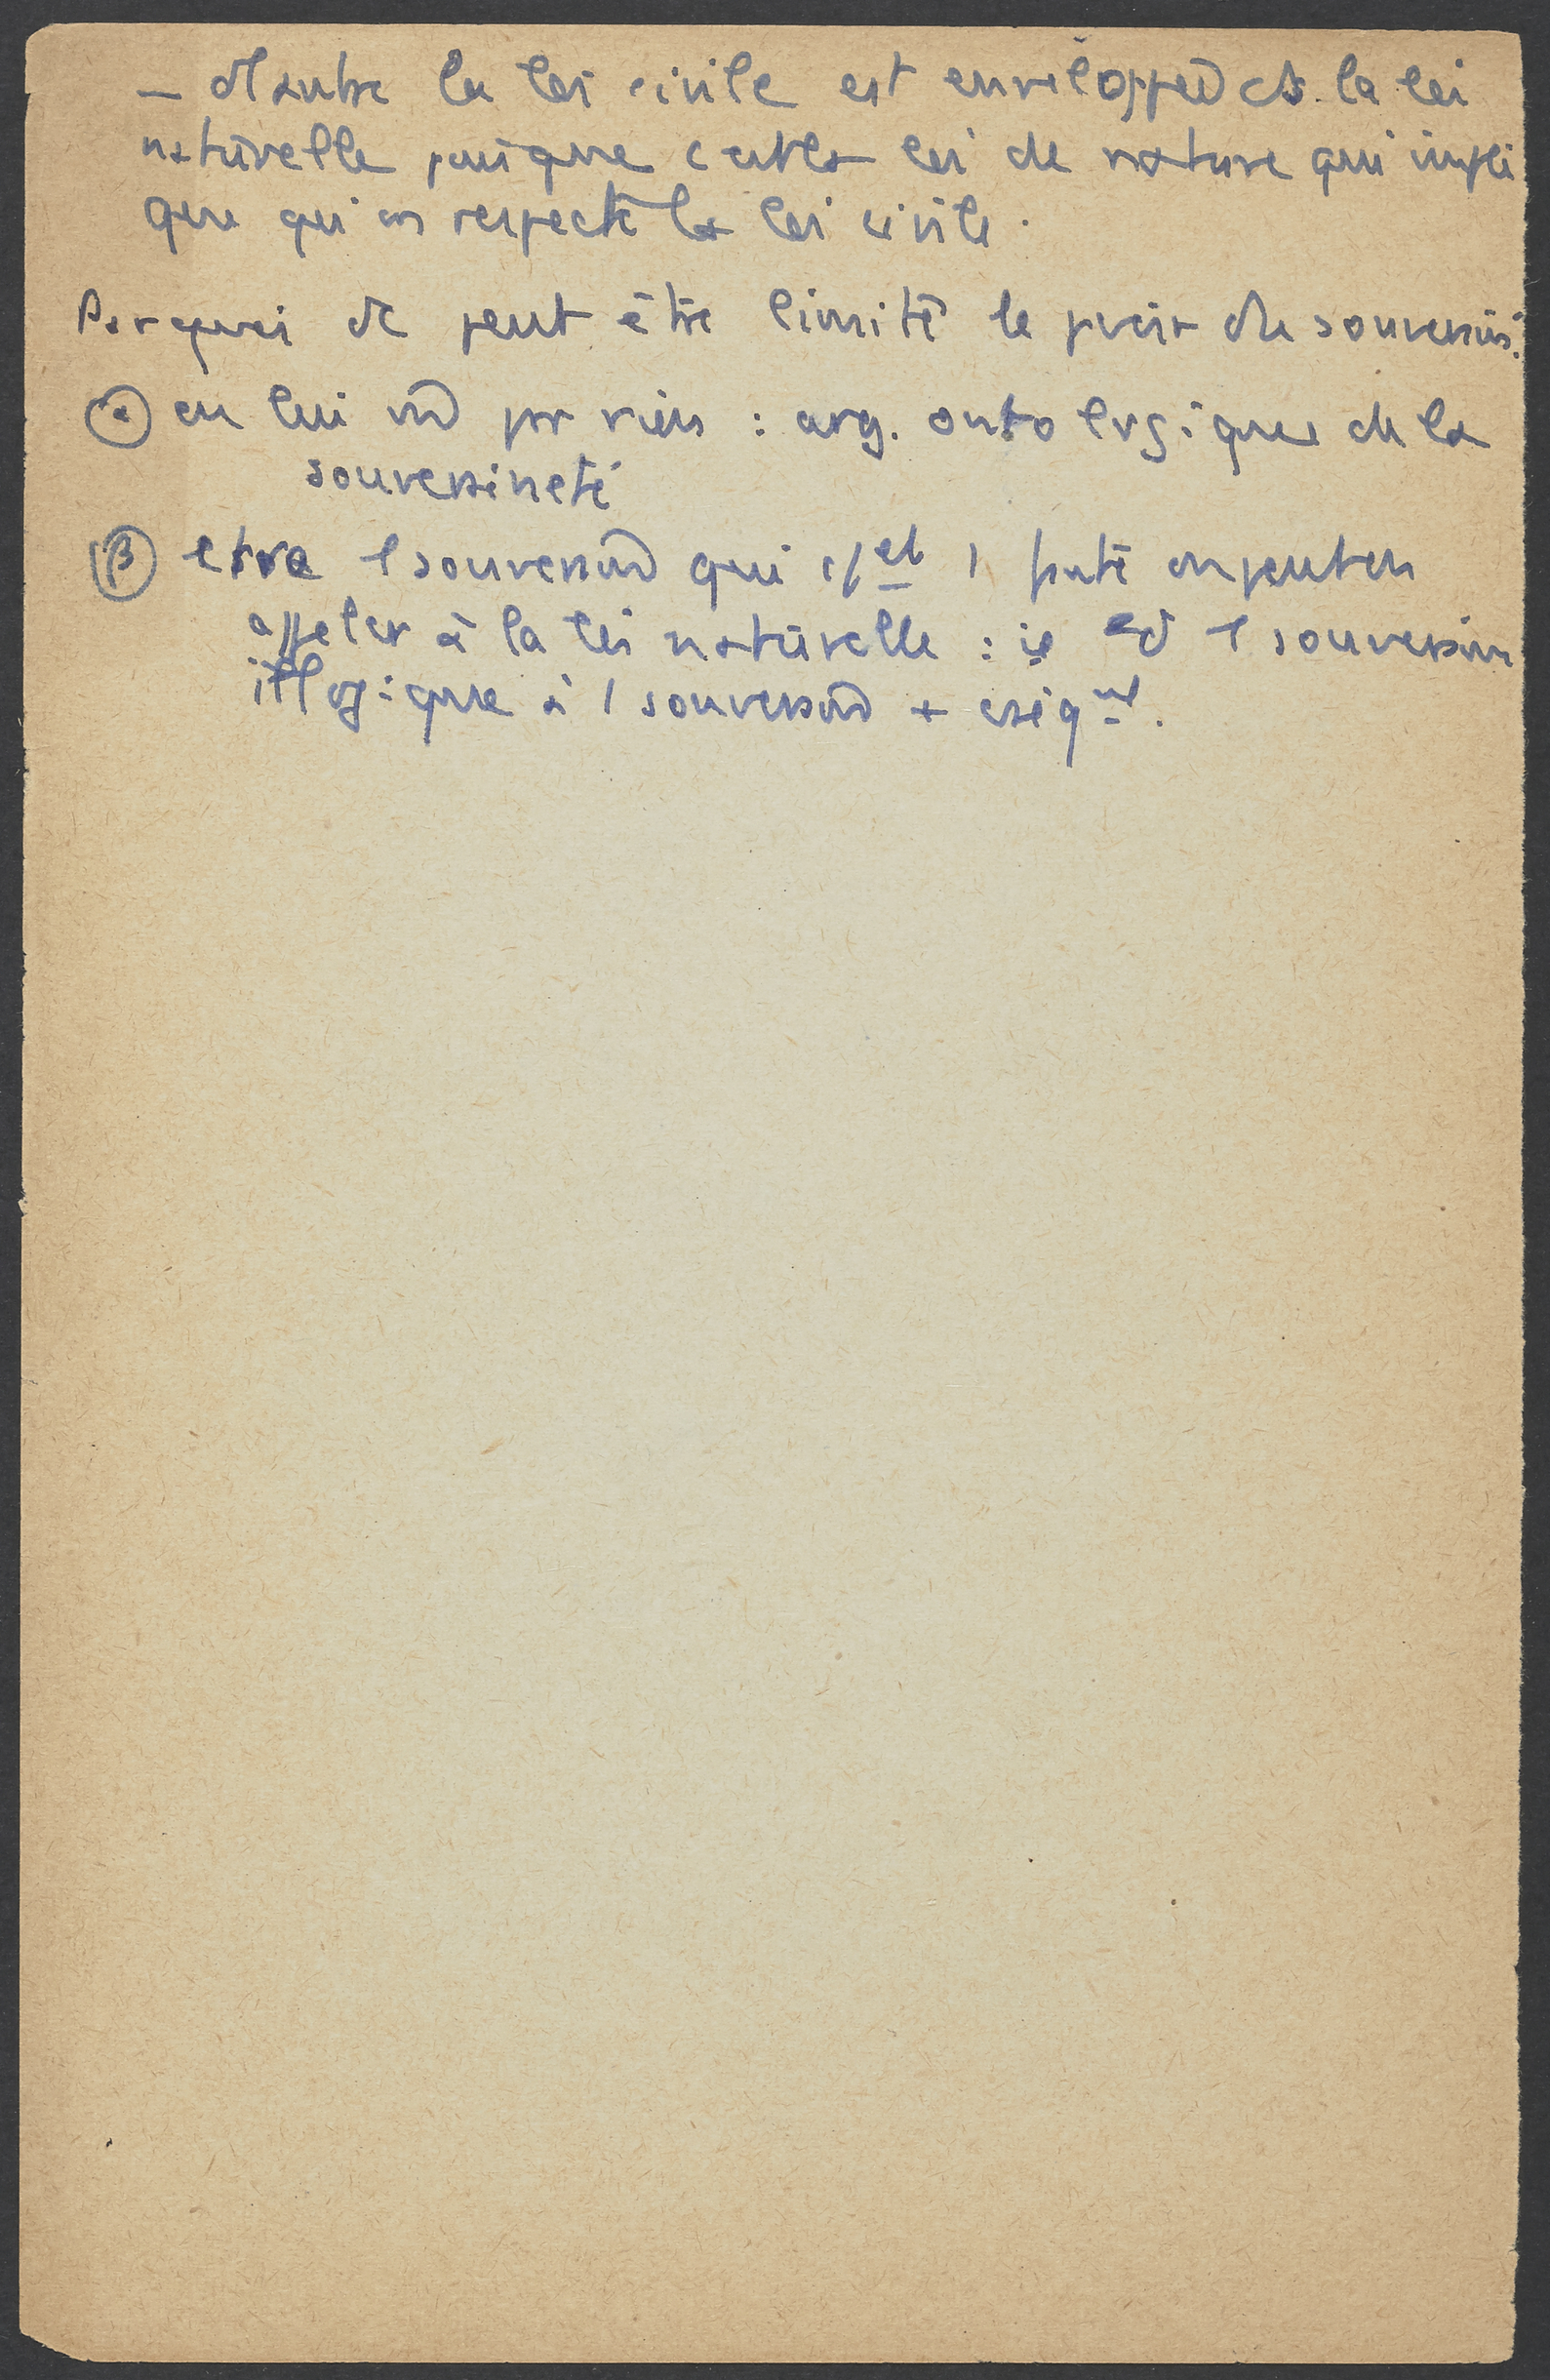 — d'autre la loi civile est enveloppée ds la loi
naturelle puisque c'est la loi de nature qui impli
que qu'on respecte la loi civile.
Par quoi peut être limité le pvoir du souverain?
(α) en lui par rien : arg. ontologique de la
souveraineté
(β) souverain qui on peut en
appeler à la loi naturelle : ie souverain
illogique à 1 souverain +